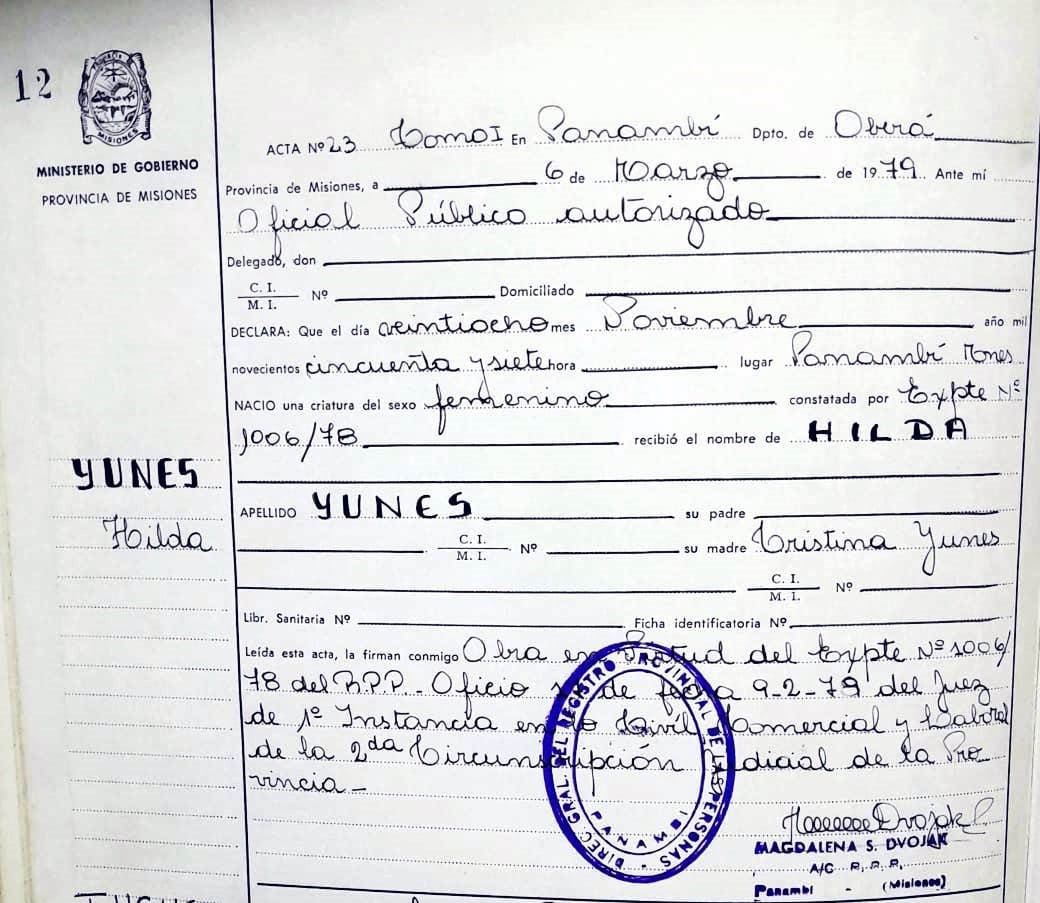 12
MISIONES
MINISTERIO DE GOBIERNO
PROVINCIA DE MISIONES
ACTA Nº 23 Tomo I En Panambí Dpto. de Oberá
Provincia de Misiones, a 6 de Marzo de 1979 Ante mí
Oficial Público autorizado
Delegado, don
C. I.
M. I. Nº Domiciliado
DECLARA: Que el día veintiocho mes Noviembre año mil
novecientos cincuenta y siete hora lugar Panambí Mnes
NACIO una criatura del sexo femenino constatada por Expte Nº
1006/78 recibió el nombre de HILDA
YUNES
Hilda
APELLIDO YUNES su padre
C. I.
M. I. Nº su madre Cristina Yunes
C. I.
M. I. Nº
Libr. Sanitaria Nº Ficha identificatoria Nº
Leída esta acta, la firman conmigo Obra en del Expte Nº 1006/
78 del R.P.P. Oficio de fecha 9-2-79 del Juez
de 1º Instancia en lo Civil Comercial y Laboral
de la 2da Circunscripción Judicial de la Pro
vincia -
DIREC. GRAL. DEL REGISTRO PROVINCIAL DE LAS PERSONAS
PANAMBI
Dvojak
MAGDALENA S. DVOJAK
A/C R. P. P.
Panambi - (Misiones)